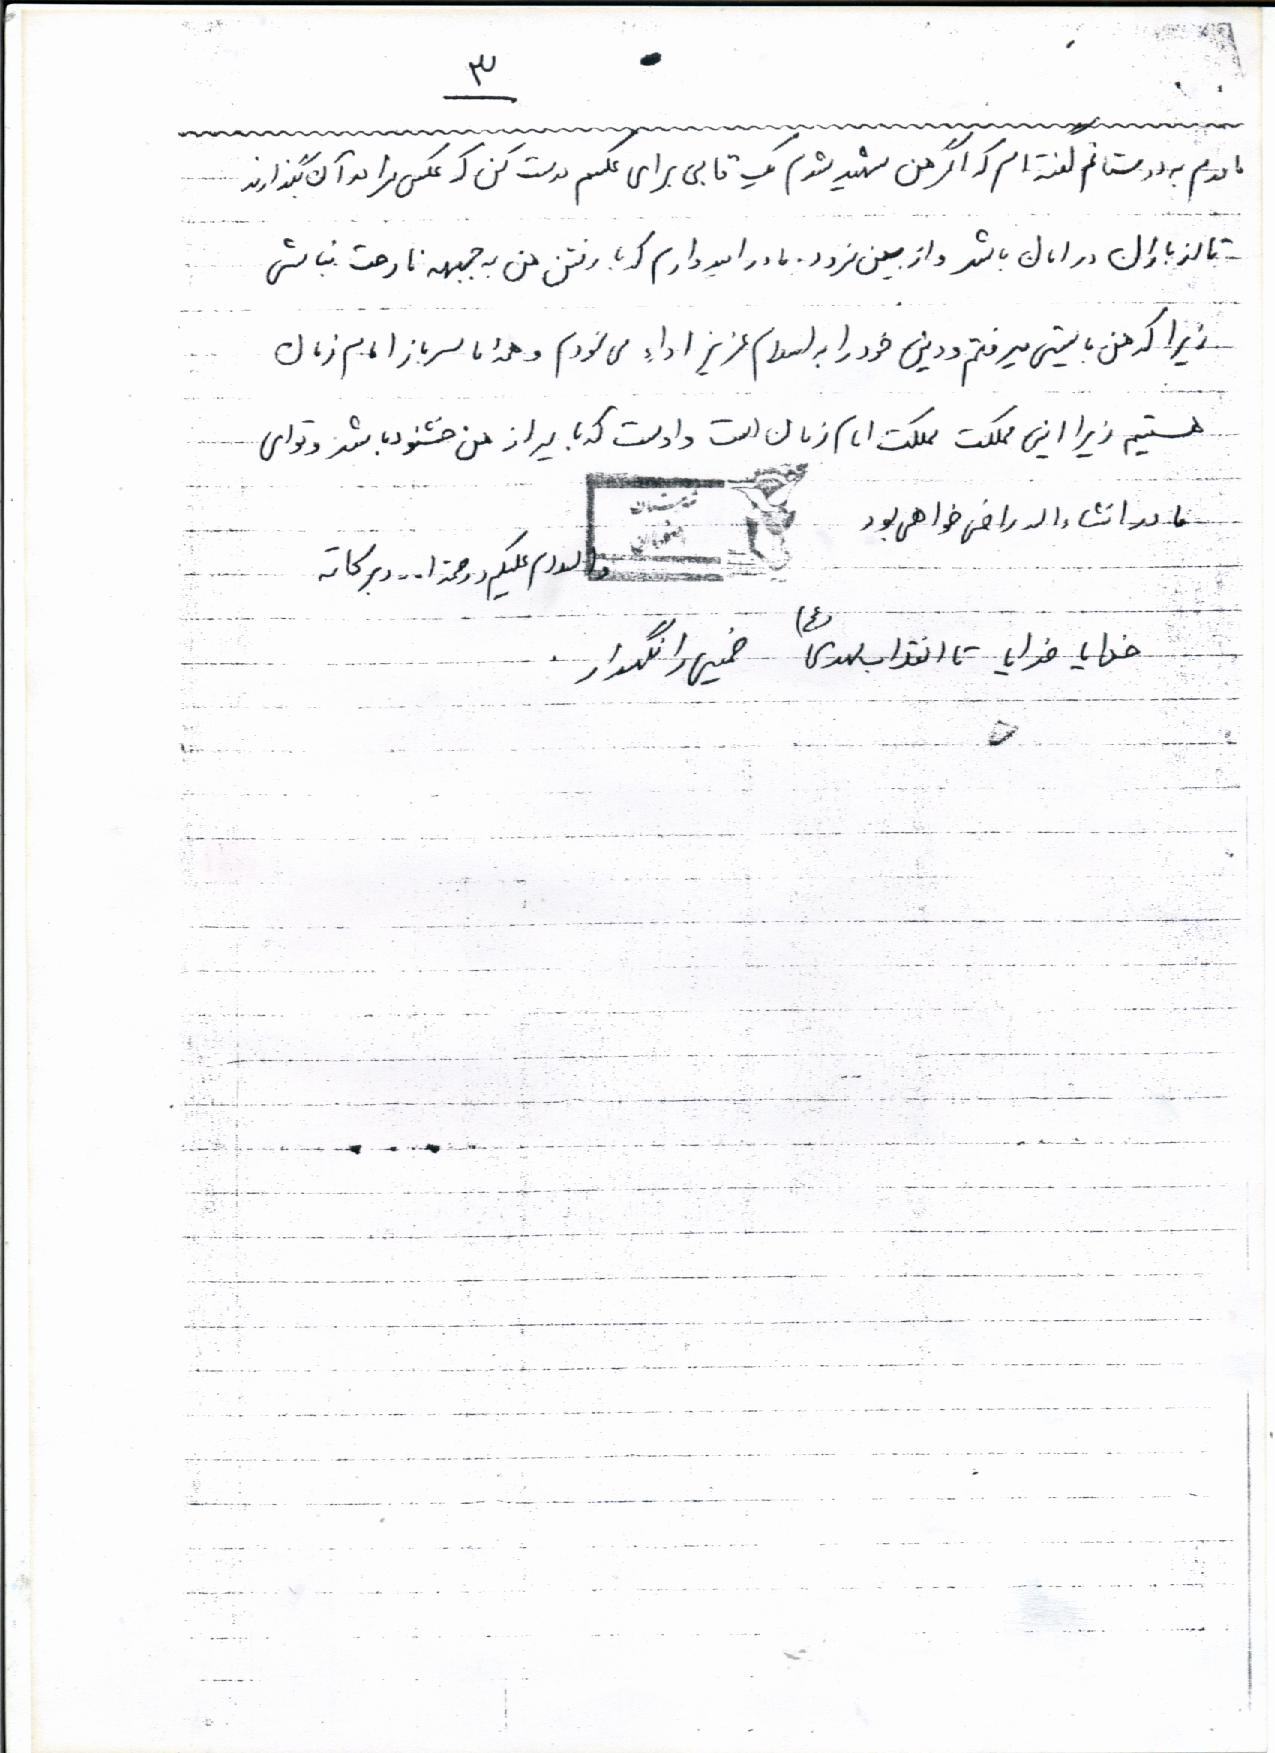 ۳
مادرم به دوستانم گفته‌ام که اگر من شهید شدم یک قابی برای عکسم درست کن که عکس مرا در آن بگذارند
تا از باران در امان باشد و از بین نرود. مادر امیدوارم که با رفتن من به جبهه ناراحت نباشی
زیرا که من بایستی میرفتم و دین خود را به اسلام عزیز اداء می‌نمودم و همهٔ ما سرباز امام زمان
هستیم زیرا این مملکت مملکت امام زمان است و اوست که باید از من خشنود باشد و توای
مادر انشاءاله راضی خواهی بود
والسلام علیکم و رحمة ا... و برکاته
خدایا خدایا تا انقلاب مهدی (ع) خمینی را نگهدار.